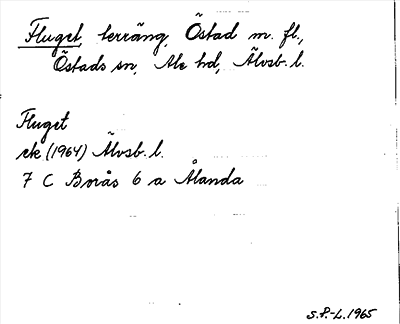 Fluget, terräng, Östad m. fl.,
Östads sn, Ale hd, Älvsb. l.
Fluget
ek (1964) Älvsb. l.
7 C Borås 6 a Ålanda
S.P.-L. 1965